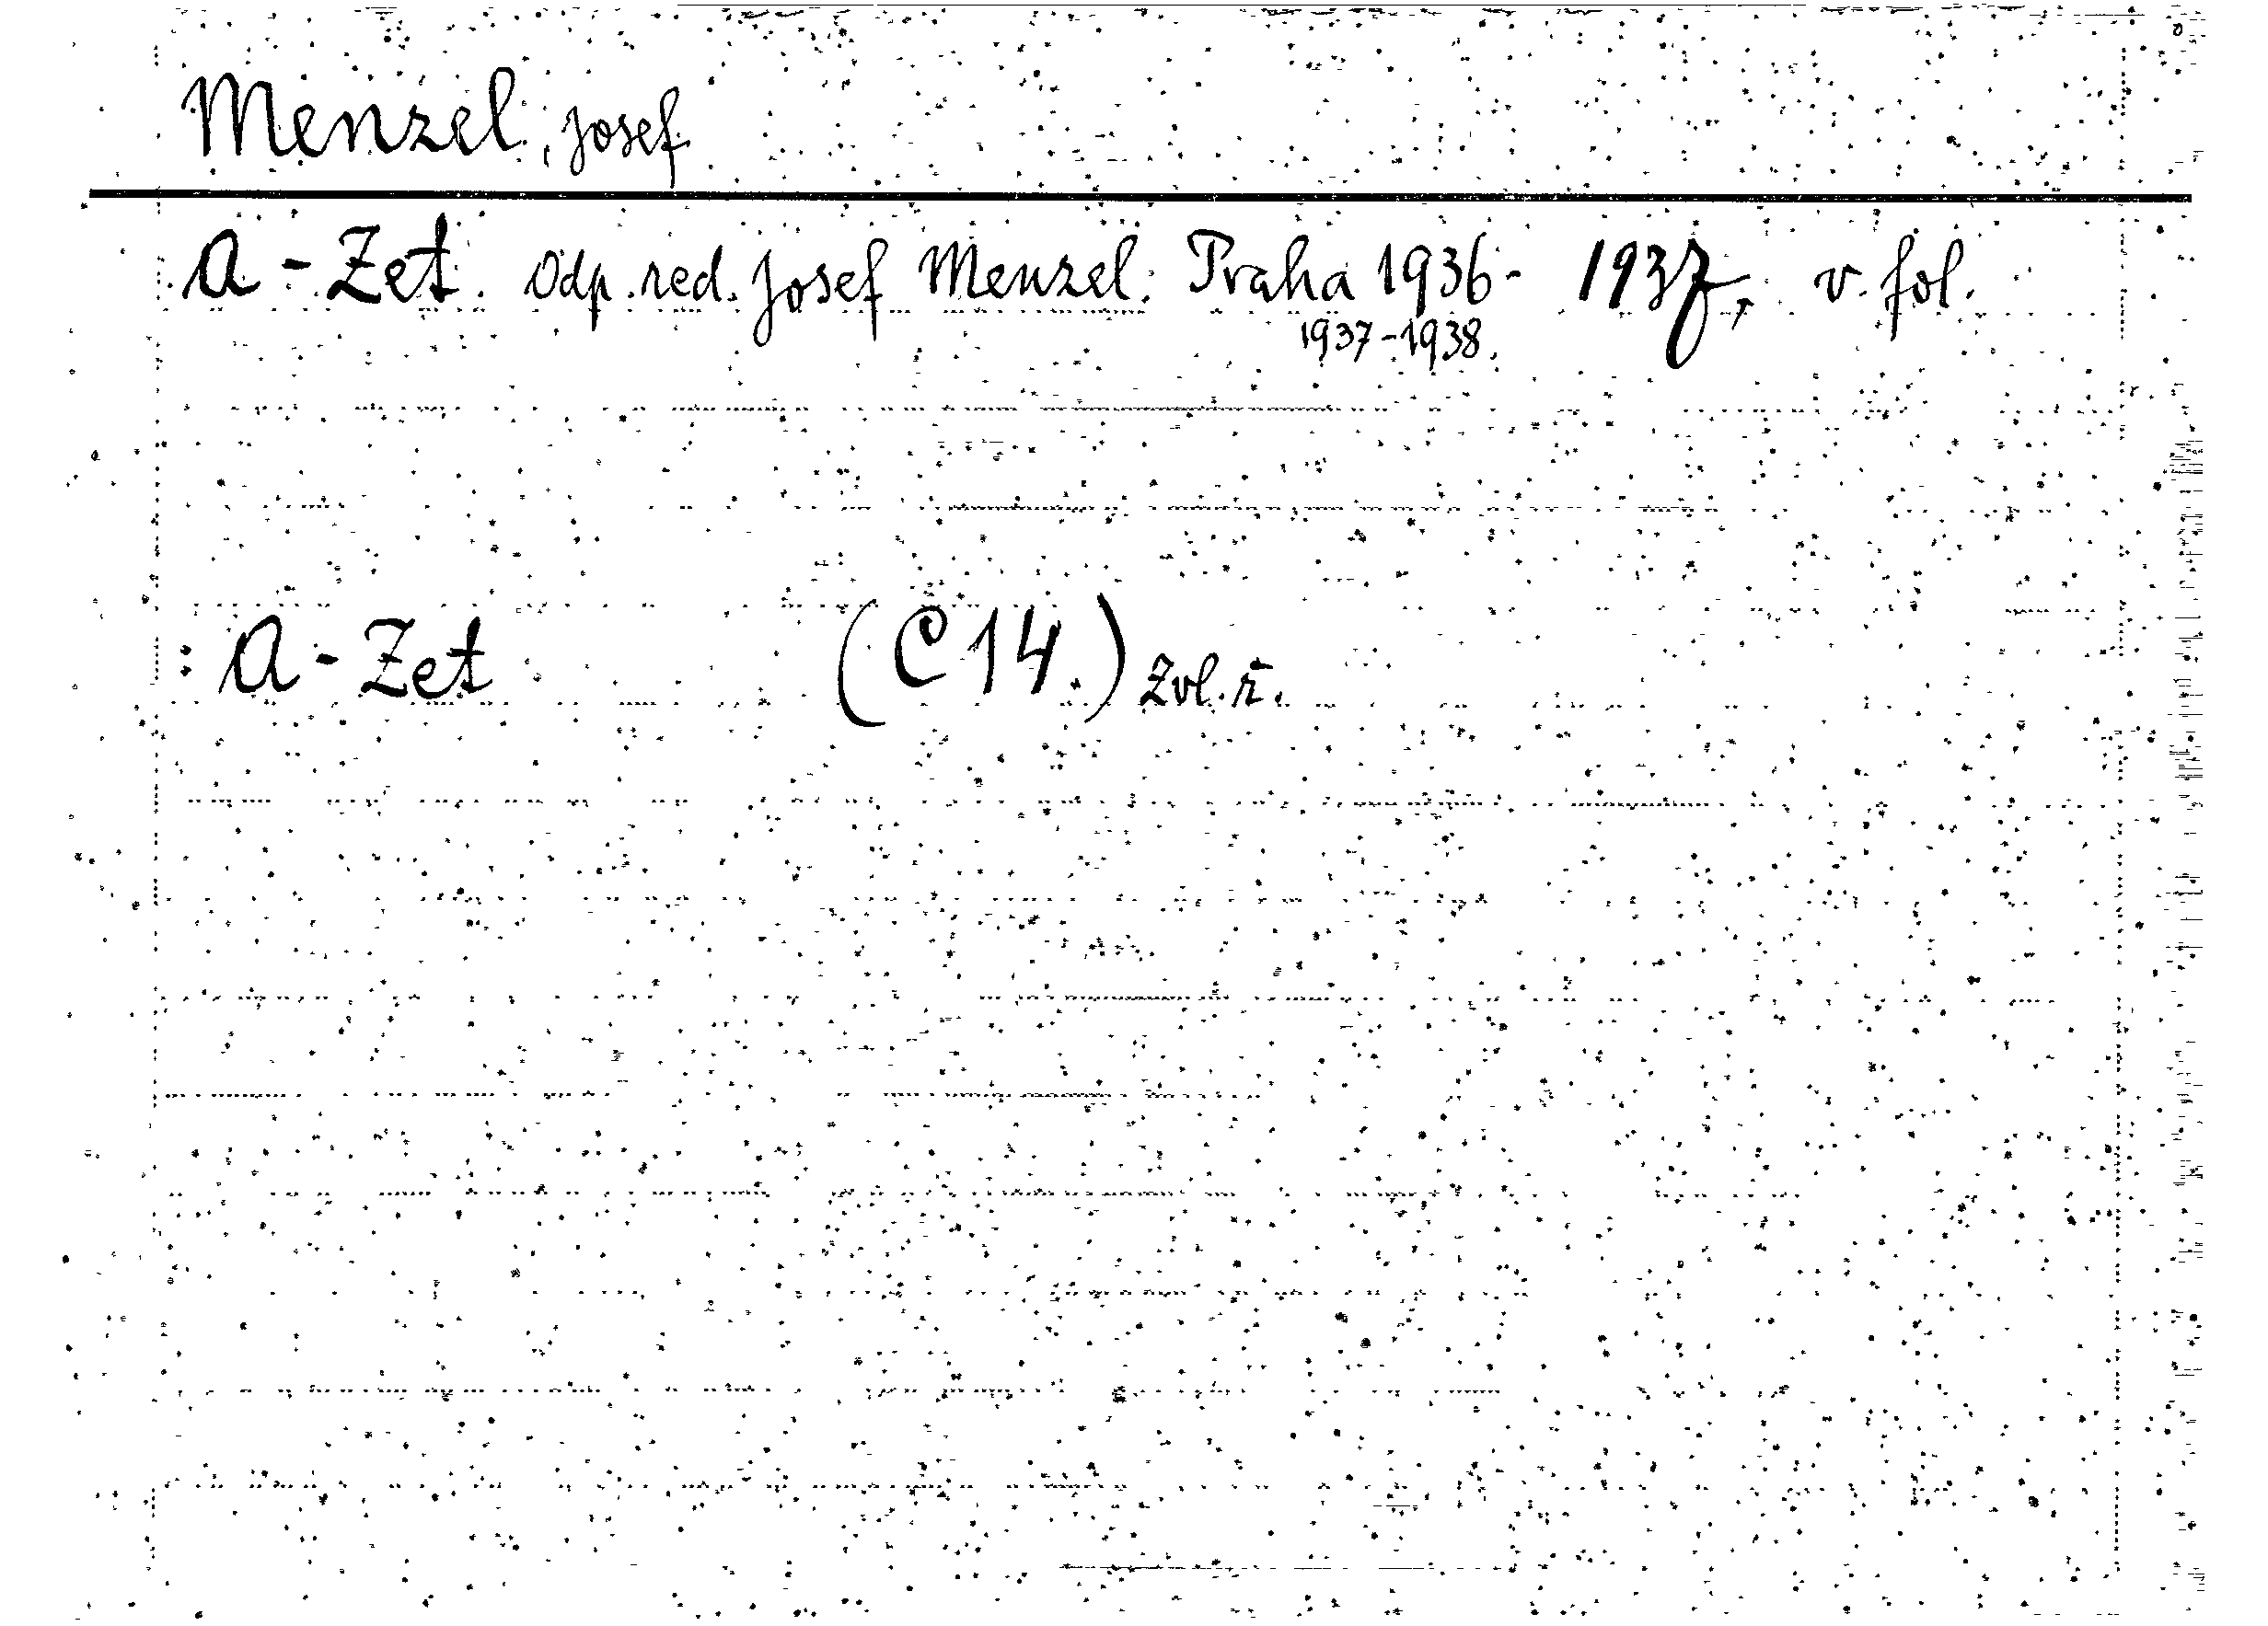 Menzel, Josef
A-Zet. Odp. red. Josef Menzel. Praha 1936- 1937, v. fol.
1937-1938.
: A-Zet (C 14.) Zvl. ř.